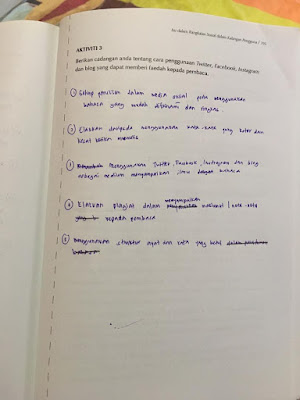 AKTIVITI 3
Berikan cadangan anda tentang cara penggunaan Twitter, Facebook, Instagram
dan blog yang dapat memberi faedah kepada pembaca.
① Setiap penulisan dalam media sosial perlu menggunakan
bahasa yang mudah difahami dan ringkas.
② Elakkan daripada menggunakan kata-kata yang kotor dan
③ Menggunakan Twitter, Facebook, Instagram dan blog
sebagai medium menyampaikan ilmu
④ Elakkan plagiat dalam menyampaikan maklumat / kata-kata
kepada pembaca
⑤ Menggunakan struktur ayat dan kata yang betul